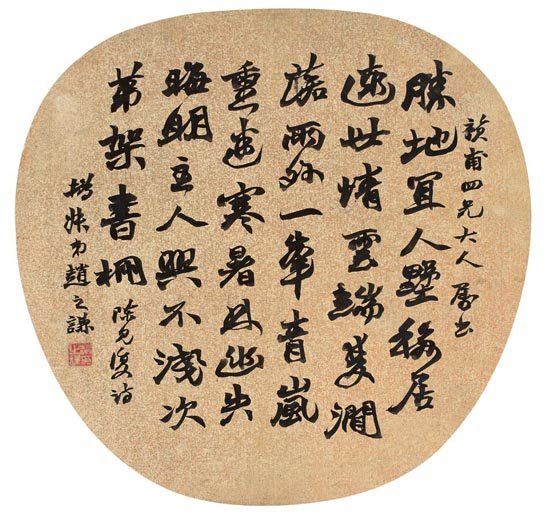 甫四兄大人屬書
勝地宜人墅移居
遠世情雲端雙澗
落雨外一峯青嵐
重迷寒暑窗幽失
晦明主人興不淺次
第架書棚
陳復詩
撝叔弟趙之謙